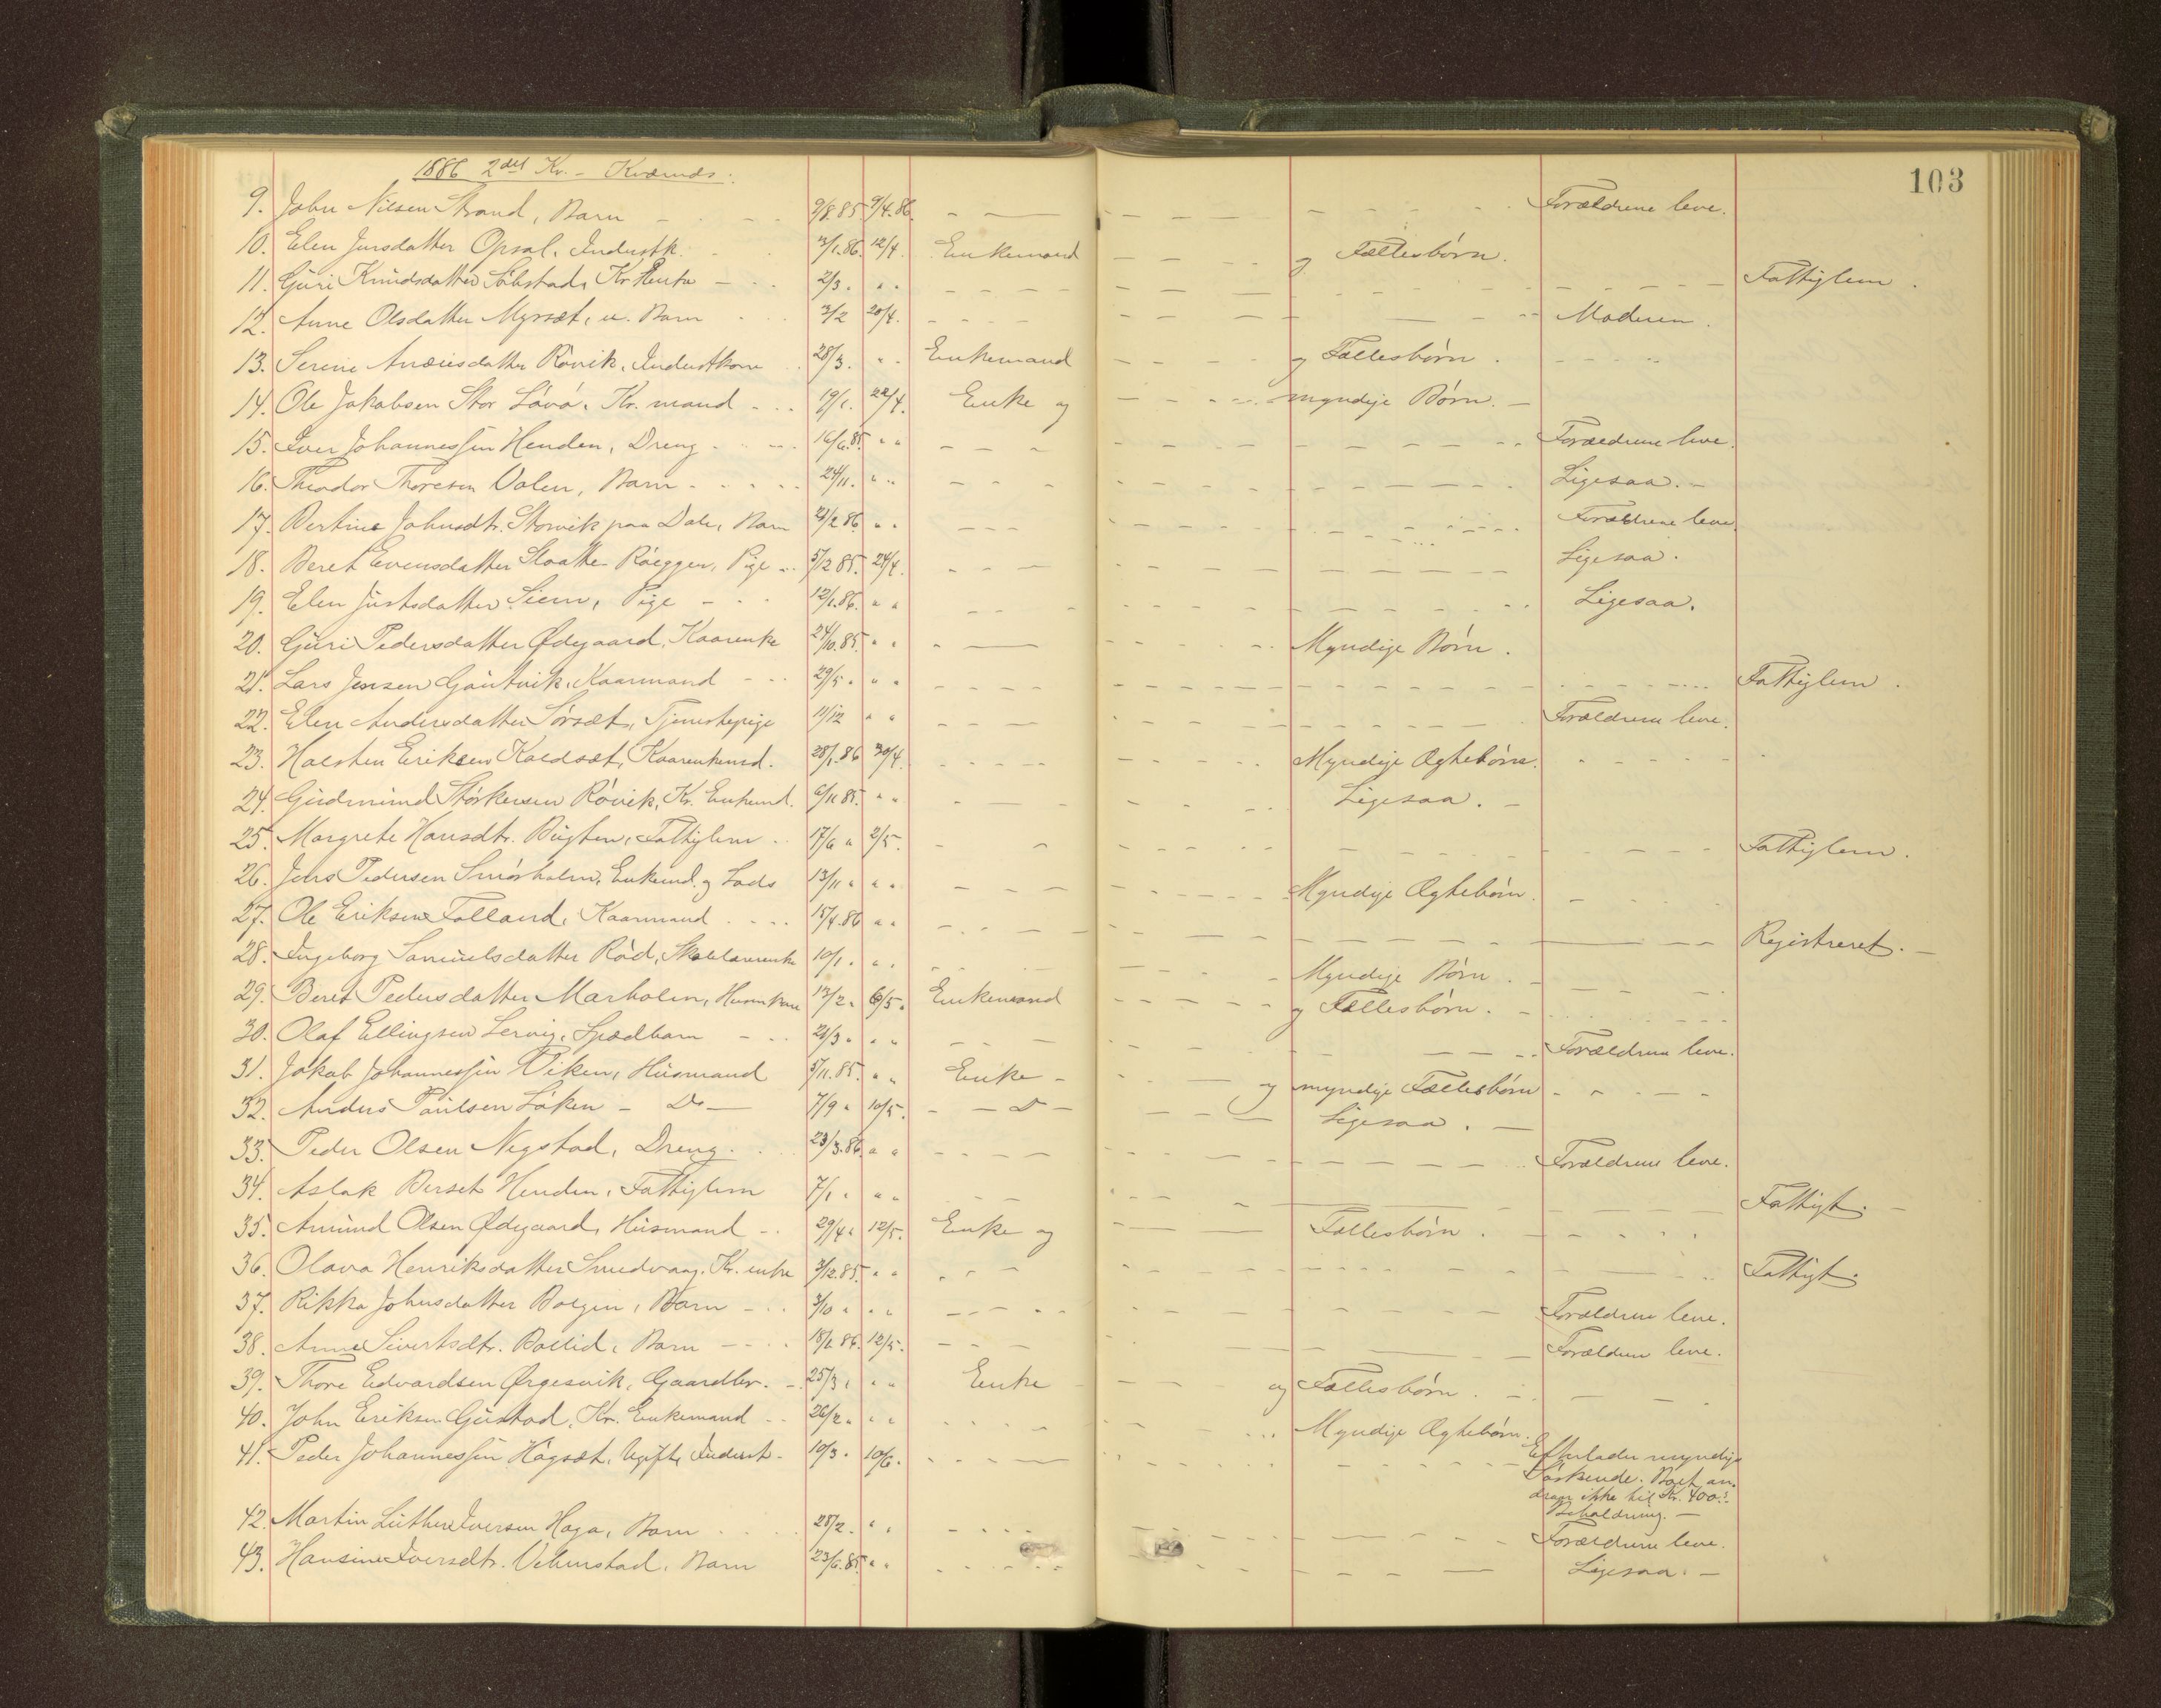 103
1886 2det Kv. - Kværnæs.
9. John Nilsen Strand, Barn - - - 9/8.85 9/4.86. - - Forældrene leve.
10. Elen Jensdatter Opsal, Inderstk. 3/1.86. 12/4. Enkemand - - og Fællesbörn.
11. Guri Knudsdatter Kr. Enke - - 2/3. " " - - Fattiglem.
12. Anne Olsdatter Myrsæt, u. Barn 3/2 20/4. - - Moderen.
13. Serine Røvik, Inderstkone 28/3. " " Enkemand - - og Fællesbörn.
14. Ole Jakobsen Stor Låvå. Kr. mand - - 19/1. 22/4. Enke og - - myndige Börn. -
15. Iver Johannessen Henden, Dreng - - 16/6.85 " " - - Forældrene leve.
16. Theodor Thoresen Valen, Barn - - 24/11. " " - - Ligesaa. -
17. Bertine Johnsdtr. Storvik paa Dale, Barn 21/2 86 " " - - Forældrene leve.
18. Beret Evensdatter Pige - 5/12 85. 24/4. - - Ligesaa.
19. Elen Justsdatter Siem, Pige - - 12/1.86. " " - - Ligesaa.
20. Guri Pedersdatter Ødegaard, Kaarenke 24/10.85. " " - - Myndige Börn.
21. Lars Jensen Gautvik, Kaarmand - - 29/5. " " - - Fattiglem.
22. Elen Andersdatter Sörsæt, Tjenestepige 11/12 " " - - Forældrene leve.
23. Halsten Eriksen Kaldsæt, Kaarenkemd. 28/1.86 30/4. - - Myndige Ægtebörn.
24. Gudmund Störkersen Rövik, Kr. Enkemd. 6/11 85. " " - - Ligesaa. -
25. Margrete Hansdtr. Bugten, Fattiglem - 17/6 " 2/5. - - Fattiglem.
26. Jens Pedersen Smörholm, Enkemd. og Lods 13/11 " " " - - Myndige Ægtebörn.
27. Ole Eriksen Folland, Kaarmand - - 15/4.86 " " - - Registreret. -
28. Ingeborg Samuelsdatter Röd, 10/1. " " - - Myndige Börn.
29. Beret Pedersdatter Marholm, 13/2 " 6/5. Enkemand - - og Fællesbörn.
30. Olaf Ellingsen Lervig, Spædbarn - - 21/3 " " " - - Forældrene leve.
31. Jakob Johannessen Viken, Husmand 5/11.85. " " Enke - - og myndige Fællesbörn
32. Anders Paulsen Löken - Do - 7/9 " 10/5. - Do - - Ligesaa. -
33. Peder Olsen Negstad, Dreng. 23/3.86. " " - - Forældrene leve.
34. Aslak Berset Henden, Fattiglem 7/1. " " - - Fattigt.
35. Amund Olsen Ødegaard, Husmand - 29/4 " 12/5. Enke og - - Fællesbörn.
36. Olava Henriksdatter Smedvaag. Kr. enke 3/12.85. " " - - Fattigt.
37. Rikka Johnsdatter Bolgen, Barn - - 3/10 " " " - - Forældrene leve.
38. Anne Sivertsdtr. Bollid, Barn - - 18/1.86. 12/5. - - Forældrene leve.
39. Thore Edvardsen Ørgesvik, Gaardbr. - 25/3. " " Enke - - og Fællesbörn. -
40. John Eriksen Gustad, Kr. Enkemand - - 26/2 " " " - - Myndige Ægtebörn.
41. Peder Johannessen Hagsæt, Ugift, Inderst - 10/3. 10/6. - - Efterlader myndige
Söskende. Boet an-
drager ikke til Kr. 400.-
Beholdning. -
42. Martin Luther Iversen Haga, Barn 28/2. " " - - Forældrene leve.
43. Hansine Iversdtr. Vebenstad, Barn 23/6.85. " " - - Ligesaa. -